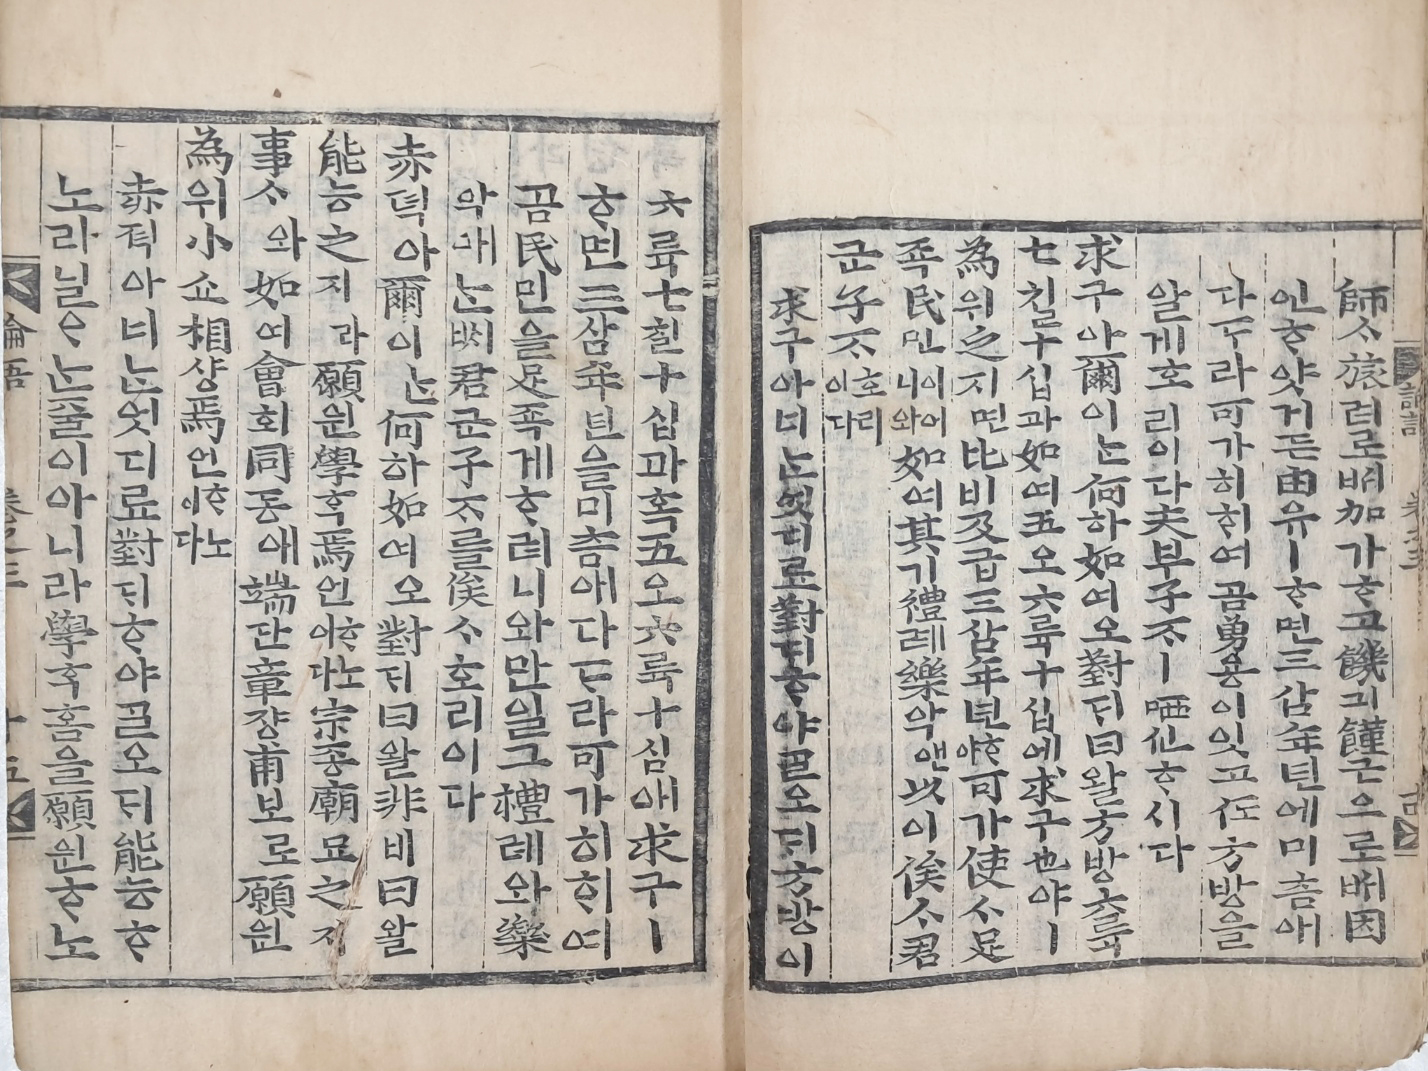 師ᄉᆞ旅려로ᄡᅥ加가ᄒᆞ고饑긔饉근으로ᄡᅥ因
인ᄒᆞ얏거든由유ㅣᄒᆞ면三삼年년에미츰애
다ᄃᆞ라可가히ᄒᆞ여곰勇용이잇고ᄯᅩ方방을
알게호리이다夫부子ᄌᆞㅣ哂신ᄒᆞ시다
求구아爾이ᄂᆞᆫ何하如여오對ᄃᆡ曰왈方방六륙
七칠十십과如여五오六륙十십에求구也야ㅣ
為위之지면比비及급三삼年년ᄒᆞ야可가使ᄉᆞ足
죡民민이어니와如여其기禮례樂악앤以이俟ᄉᆞ君
군子ᄌᆞ호리이다
求구아너ᄂᆞᆫ엇디료對ᄃᆡᄒᆞ야ᄀᆞᆯ오ᄃᆡ方방이
六륙七칠十십과혹五오六륙十십애求구ㅣ
ᄒᆞ면三삼年년을미츰애다ᄃᆞ라可가히ᄒᆞ여
곰民민을足죡게ᄒᆞ려니와만일그禮례와樂
악애ᄂᆞᆫᄡᅥ君군子ᄌᆞ를俟ᄉᆞ호리이다
赤젹아爾이ᄂᆞᆫ何하如여오對ᄃᆡ曰왈非비曰왈
能능之지라願원學ᄒᆞᆨ焉언ᄒᆞ노이다宗종廟묘之지
事ᄉᆞ와如여會회同동애端단章쟝甫보로願원
為위小쇼相샹焉언ᄒᆞ노이다
赤젹아너ᄂᆞᆫ엇디료對ᄃᆡᄒᆞ야ᄀᆞᆯ오ᄃᆡ能능ᄒᆞ
노라닐ᄋᆞᄂᆞᆫ줄이아니라學ᄒᆞᆨ홈을願원ᄒᆞ노
論語 卷之三 十五